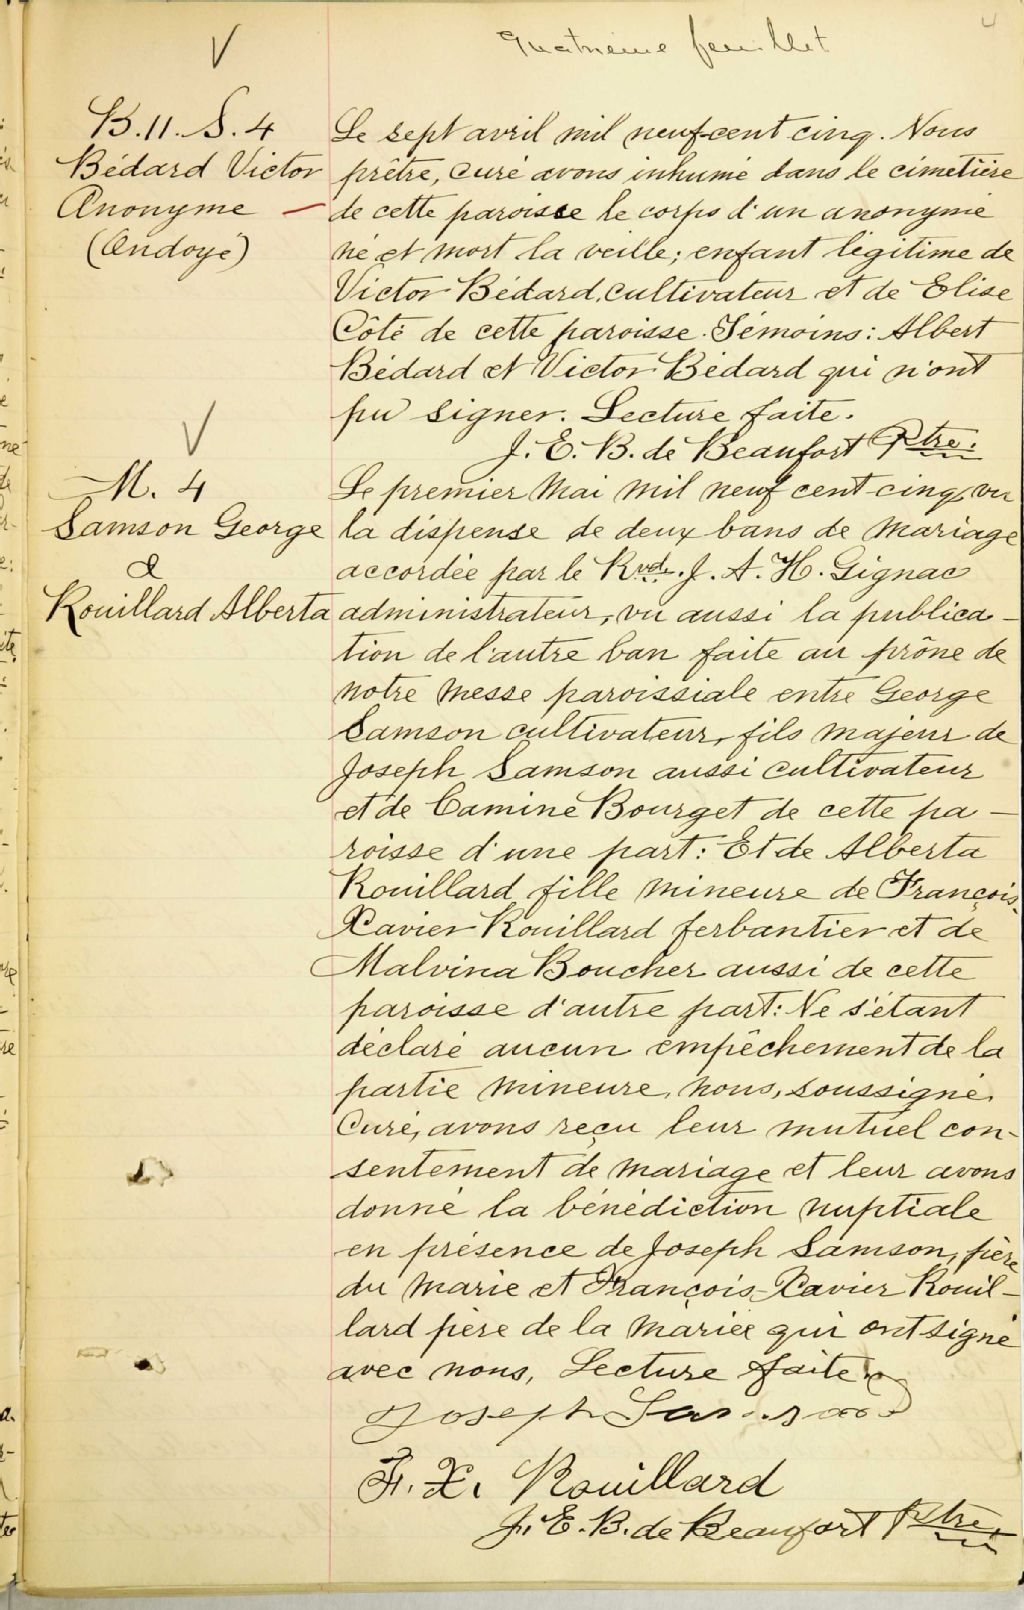 Quatrième feuillet
4
B.11. S. 4
Bédard Victor
Anonyme
(Ondoyé)
Le sept avril mil neuf-cent cinq. Nous
prêtre, curé avons inhumé dans le cimetière
de cette paroisse le corps d'un anonyme
né et mort la veille; enfant légitime de
Victor Bédard, cultivateur et de Elise
Côté de cette paroisse. Témoins: Albert
Bédard et Victor Bédard qui n'ont
pu signer. Lecture faite.
J. E. B. de Beaufort Ptre.
M. 4
Samson George
&
Rouillard Alberta
Le premier Mai mil neuf cent-cinq, vu
la dispense de deux bans de mariage
accordée par le Rvd. J. A. H. Gignac
administrateur, vu aussi la publica-
tion de l'autre ban faite au prône de
notre messe paroissiale entre George
Samson cultivateur, fils majeur de
Joseph Samson aussi cultivateur
et de Camine Bourget de cette pa-
roisse d'une part: Et de Alberta
Rouillard fille mineure de François-
Xavier Rouillard ferbantier et de
Malvina Boucher aussi de cette
paroisse d'autre part: Ne s'étant
déclaré aucun empêchement de la
partie mineure, nous, soussigné,
Curé, avons reçu leur mutuel con-
sentement de mariage et leur avons
donné la bénédiction nuptiale
en présence de Joseph Samson, père
du marié et François-Xavier Rouil-
lard père de la mariée qui ont signé
avec nous, Lecture faite.
Joseph Samson
F. X. Rouillard
J. E. B. de Beaufort Ptre.